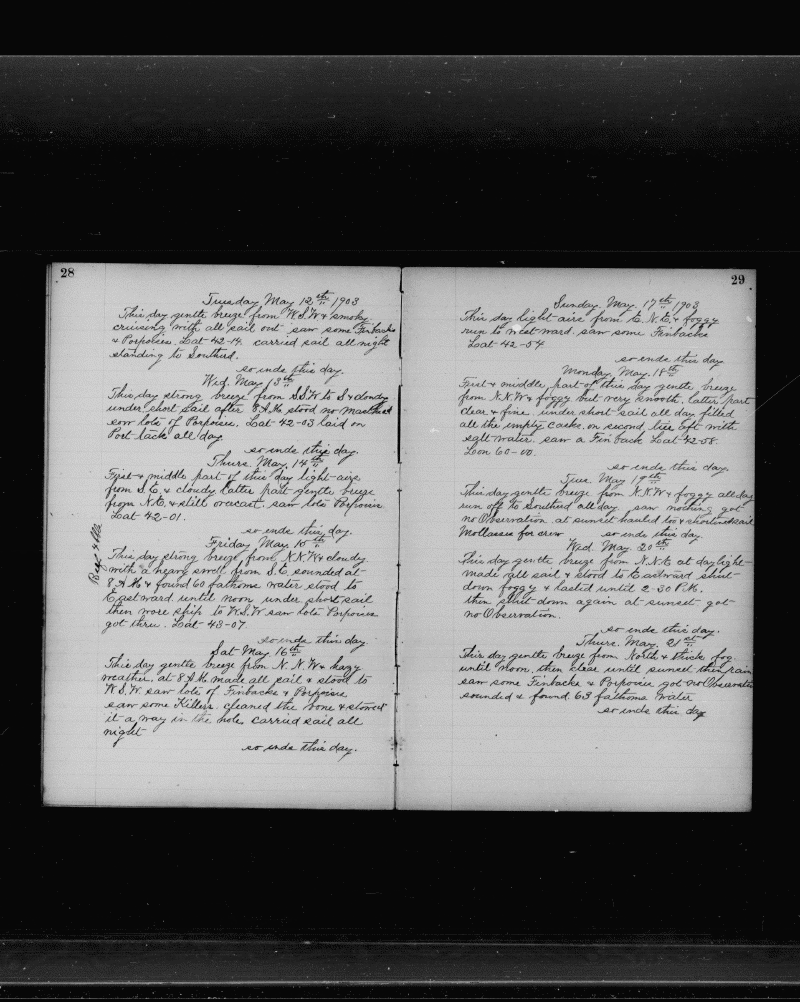 28
Tuesday May 12th 1903
This day gentle breeze from W.S.W & smoky
cruising with all sail out saw some Finbacks
& Porpoises. Lat 42-14. carried sail all night
standing to Southid.
so ends this day.
Wed. May 13th
This day strong breeze from S.S.W to S & cloudy
under short sail after 8 A.M. stood no Masthead
saw lots of Porpoises. Lat 42-03 laid on
Port tack all day
so ends this day.
Thurs. May. 14th
First & middle part of this day light airs
from S.E. & cloudy latter part gentle breeze
from N.E. & still overcast. saw lots Porpoises
Lat 42-01.
so ends this day.
Friday May. 15th
This day strong breeze from N.N.W & cloudy
with a heavy swell from S.E. sounded at
8 A.M. & found 60 fathoms water stood to
Eastward until noon under short sail
then wore ship to W.S.W saw lots Porpoises
got three. Lat 43-07.
so ends this day
Sat May. 16th
This day gentle breeze from N.N.W & hazy
weather. at 8 A.M. made all sail & stood to
W.S.W. saw lots of Finbacks & Porpoises
saw some Killers. cleaned the bone & stowed
it a way in the hole carried sail all
night
so ends this day.
Beef
29
Sunday. May. 17th 1903
This day light airs from E.N.E. & foggy
run to westward. saw some Finbacks
Lat 42-54
so ends this day
Monday. May. 18th
First & middle part of this day gentle breeze
from N.N.W & foggy but very smooth. latter part
clear & fine. under short sail all day filled
all the empty casks. on second tier aft with
salt water. saw a Finback Lat 42-58.
Lon 60-00.
so ends this day.
Tue. May 19th
This day gentle breeze from N.N.W & foggy all day
run off to Southid all day. saw nothing got
no Observation at sunset hauled too & shortened sail
Mollasses for crew so ends this day.
Wed. May. 20th
This day gentle breeze from N.N.E. at daylight
made all sail & stood to Eastward shut
down foggy & lasted until 2-30 P.M.
then shut down again at sunset got
no Observation.
so ends this day.
Thurs. May. 21st
This day gentle breeze from North & thick fog
until noon, then clear until sunset then rain
saw some Finbacks & Porpoises got no Observation
sounded & found 63 fathoms water
so ends this day